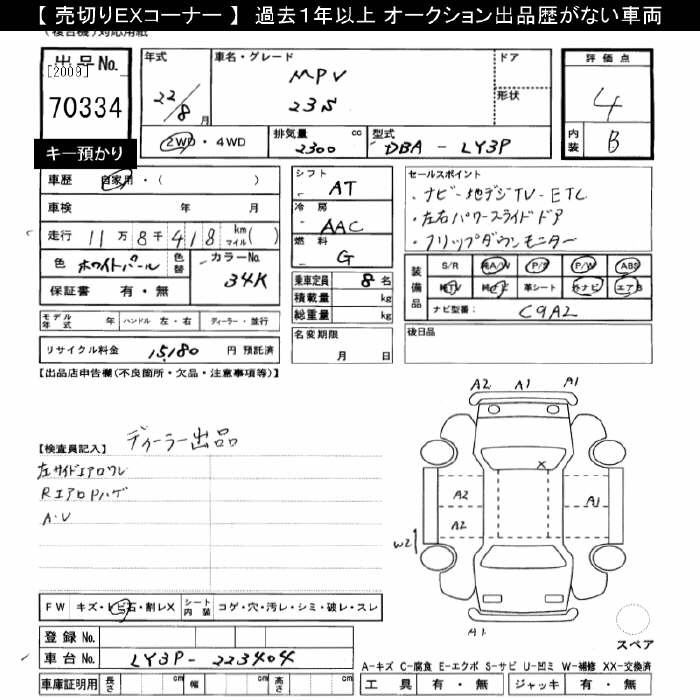 【 売切りEXコーナー 】 過去１年以上 オークション出品歴がない車両
(複合機)対応用紙
出品No.
[2009]
70334
キー預かり
年式
22/8 月
車名・グレード
MPV
23S
ドア
形状
2WD・4WD
排気量 cc
2300
型式
DBA - LY3P
評価点
4
内装
B
車歴 自家用・( )
車検 年 月
走行 11万 8千 418 km マイル( )
色 ホワイトパール 色替 カラーNo. 34K
保証書 有・無
シフト
AT
冷房
AAC
燃料
G
乗車定員 8 名
積載量 kg
総重量 kg
セールスポイント
・ナビ-地デジTV-ETC
・左右パワースライドドア
・フリップダウンモニター
装備品
S/R 純A/W P/S P/W ABS
純TV 革シート 外ナビ エアB
ナビ型番： C9A2
モデル年式 年 ハンドル 左・右 ディーラー・並行
リサイクル料金 15,180 円 預託済
名変期限
月 日
後日品
【出品店申告欄(不良箇所・欠品・注意事項等)】
【検査員記入】 ディーラー出品
左サイドエアロワレ
RエアロPハゲ
A・U
A2 A1 A1
X
A2 A1
A2
W2
A1
スペア
FW キズ・トビ石・割レX シート内装 コゲ・穴・汚レ・シミ・破レ・スレ
登録 No.
車台 No. LY3P-223404
車庫証明用 長さ cm 幅 cm 高さ cm
A-キズ C-腐食 E-エクボ S-サビ U-凹ミ W-補修 XX-交換済
工具 有・無 ジャッキ 有・無